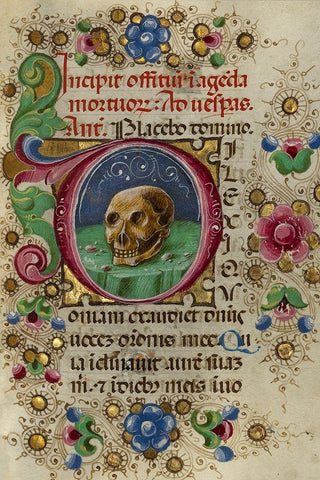 Incipit offitiū ī agēda
mortuoꝝ: Ad uesꝑas.
Añt. Placebo domino.
DILEXI QV
oniam exaudiet dñs
uocēz orōnis mee. Qu
ia īclinauit aurē suāz
m̄. & ī dieb⁹ meis īuo